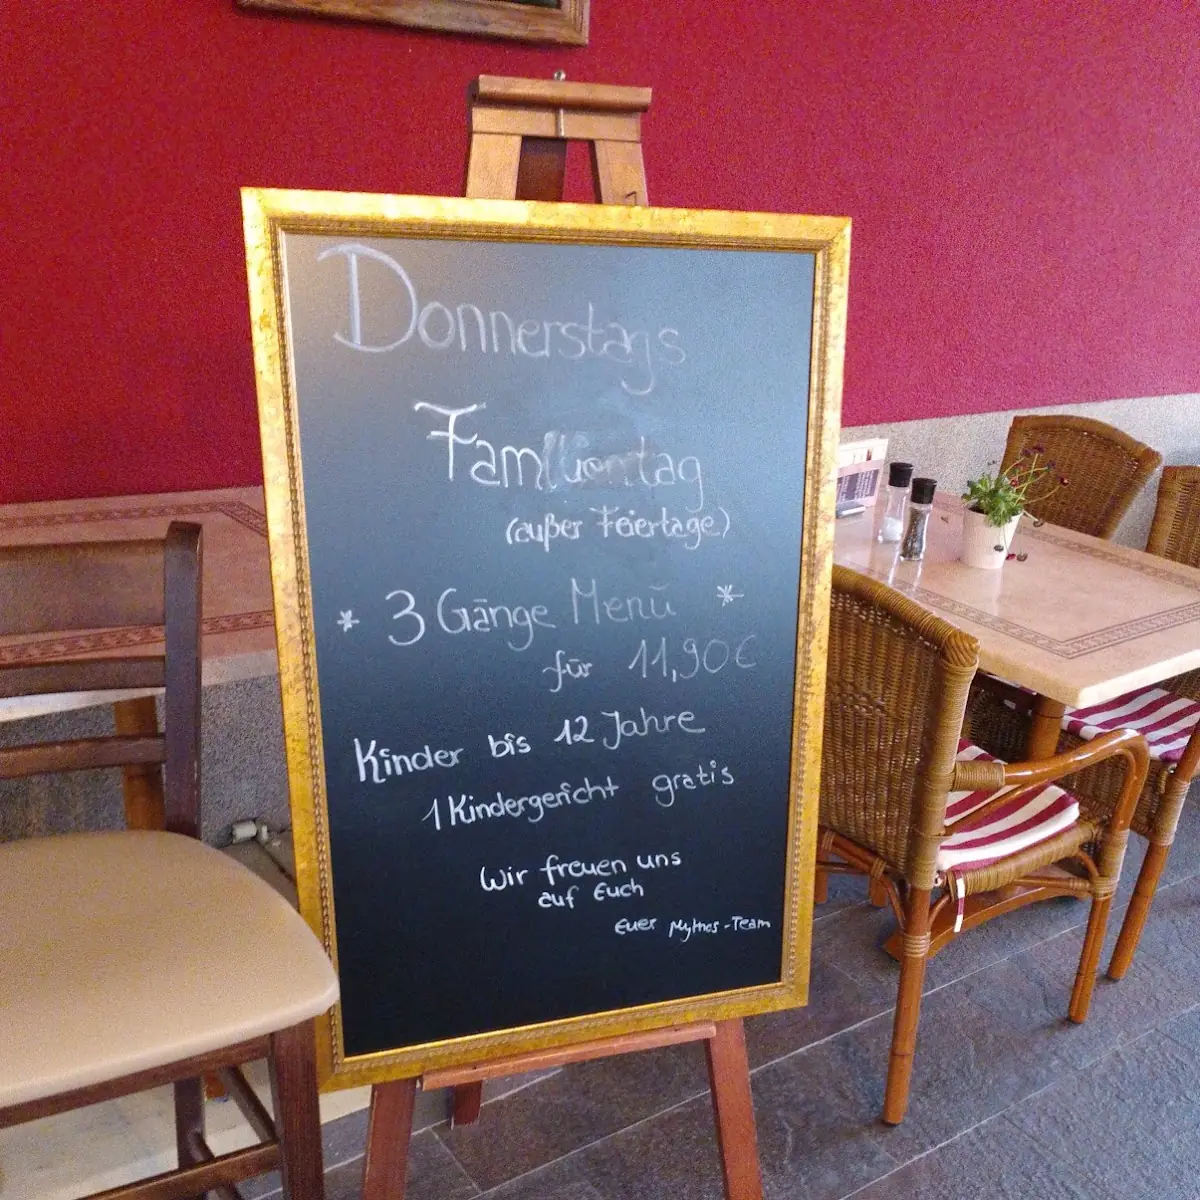 Donnerstags
Familientag
(außer Feiertage)
* 3 Gänge Menü *
für 11,90€
Kinder bis 12 Jahre
1 Kindergericht gratis
Wir freuen uns
auf Euch
Euer Mythos-Team